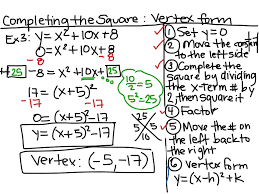 Completing the Square: Vertex form
Ex3: y=x²+10x+8
0=x²+10x+8
+25 -8=x²+10x+25
17=(x+5)²
-17 -17
0=(x+5)²-17
y=(x+5)²-17
Vertex: (-5,-17)
10/2=5
5²=25
25
5 5
10
① Set y=0
② Move the constant
to the left side
③ Complete the
square by dividing
the x-term # by
2, then square it
④ Factor
⑤ Move the # on
the left back to
the right
⑥ Vertex form
y=(x-h)²+k